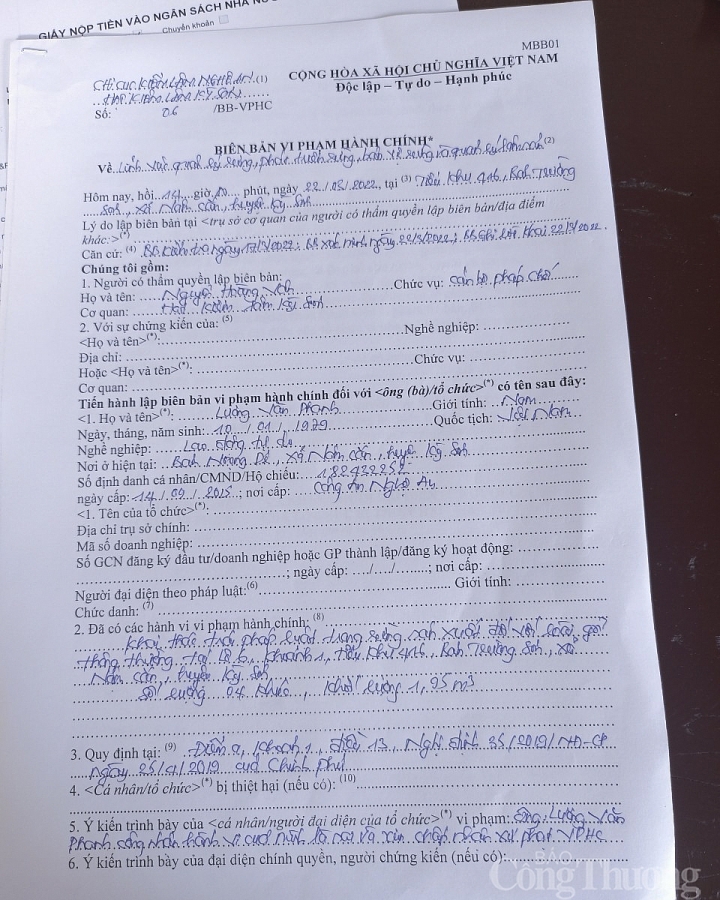 GIẤY NỘP TIỀN VÀO NGÂN SÁCH NHÀ
Chuyển khoản
MBB01
CHI CỤC KIỂM LÂM NGHỆ AN (1)
CỘNG HÒA XÃ HỘI CHỦ NGHĨA VIỆT NAM
Hạt Kiểm Lâm Kỳ Sơn
Độc lập – Tự do – Hạnh phúc
Số: 06 /BB-VPHC
BIÊN BẢN VI PHẠM HÀNH CHÍNH*
Về Lĩnh vực quản lý rừng, phát triển rừng, bảo vệ rừng và quản lý lâm sản (2)
Hôm nay, hồi 14 giờ phút, ngày 22/03/2022, tại (3) Tiểu khu 416, Bản Trường
Sơn, xã Nậm Cắn, huyện Kỳ Sơn
Lý do lập biên bản tại <trụ sở cơ quan của người có thẩm quyền lập biên bản/địa điểm
khác:>(*)
Căn cứ: (4) BB kiểm tra ngày 17/3/2022; BB xác minh ngày 22/3/2022; BB ghi lời khai 22/3/2022.
Chúng tôi gồm:
1. Người có thẩm quyền lập biên bản:
Họ và tên: Nguyễn Chức vụ: cán bộ pháp chế
Cơ quan: Hạt Kiểm lâm Kỳ Sơn
2. Với sự chứng kiến của: (5)
<Họ và tên>(*): Nghề nghiệp:
Địa chỉ:
Hoặc <Họ và tên>(*): Chức vụ:
Cơ quan:
Tiến hành lập biên bản vi phạm hành chính đối với <ông (bà)/tổ chức>(*) có tên sau đây:
<1. Họ và tên>(*): Lương Văn Phanh Giới tính: Nam
Ngày, tháng, năm sinh: 10/01/1979 Quốc tịch: Việt Nam
Nghề nghiệp: Lao động tự do
Nơi ở hiện tại: Bản Noọng Dẻ, xã Nậm Cắn, huyện Kỳ Sơn
Số định danh cá nhân/CMND/Hộ chiếu:
ngày cấp: 14/09/2015; nơi cấp: Công An Nghệ An
<1. Tên của tổ chức>(*):
Địa chỉ trụ sở chính:
Mã số doanh nghiệp:
Số GCN đăng ký đầu tư/doanh nghiệp hoặc GP thành lập/đăng ký hoạt động:
; ngày cấp: / / ; nơi cấp:
Người đại diện theo pháp luật:(6) Giới tính:
Chức danh: (7)
2. Đã có các hành vi vi phạm hành chính: (8)
khai thác trái pháp luật trong rừng sản xuất đối với loài gỗ
thông thường tại lô 6, khoảnh 1, tiểu khu 416, Bản Trường Sơn, xã
Nậm Cắn, huyện Kỳ Sơn
Số lượng 04 khúc, khối lượng 1,95 m3
3. Quy định tại: (9) Điểm a, khoản 1, Điều 13, Nghị định 35/2019/NĐ-CP
ngày 25/4/2019 của Chính phủ
4. <Cá nhân/tổ chức>(*) bị thiệt hại (nếu có): (10)
5. Ý kiến trình bày của <cá nhân/người đại diện của tổ chức>(*) vi phạm: Ông Lương Văn
Phanh công nhận hành vi của mình là sai và xin chấp nhận xử phạt VPHC
6. Ý kiến trình bày của đại diện chính quyền, người chứng kiến (nếu có):
BÁO
Công Thương